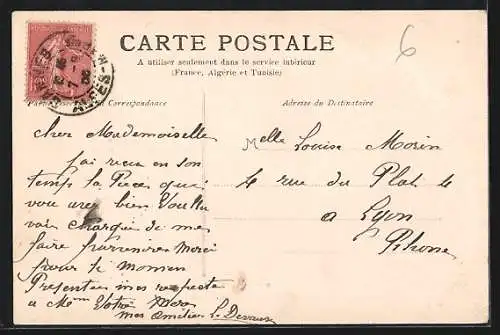 CARTE POSTALE
A utiliser seulement dans le service intérieur
(France, Algérie et Tunisie)
Correspondance
Adresse du Destinataire
6
Cher Mademoiselle
j'ai recu en son
temps la Piece que
vous avez bien Voullu
charger de me
faire parvenire Merci
pour ti
Presentee mes respects
a Mme Votre Mere
mes amitiés
Melle Louise Morin
4 rue du Plat 4
a Lyon
Rhone